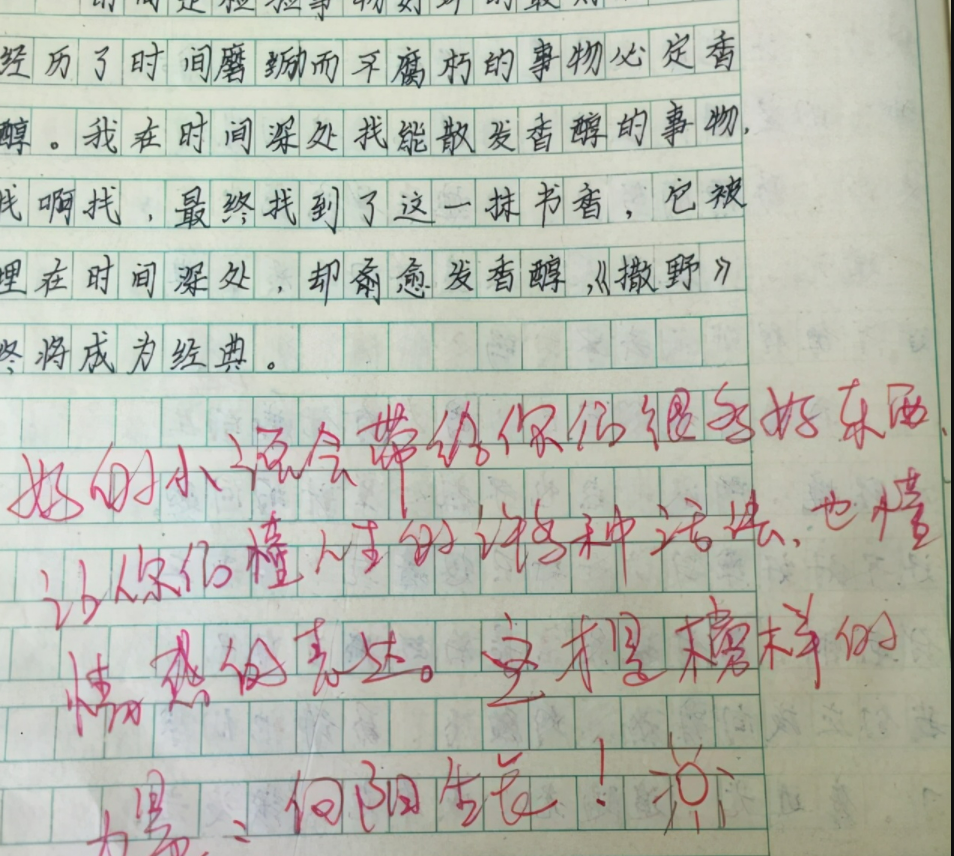 时间是检验事物好坏的最
经历了时间磨励而不腐朽的事物必定香
醇。我在时间深处找能散发香醇的事物,
找啊找,最终找到了这一抹书香,它被
埋在时间深处,却愈愈发香醇,《撒野》
终将成为经典。
好的小说会带给你们很多好东西、
让你们懂人生的许多种活法、也懂
情感的表达。 样的
力量:向阳生长!